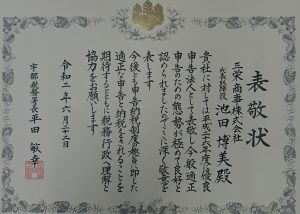 表敬状
三栄商事株式会社
代表取締役 池田博美殿
貴社に対しては平成二十六年度優良
申告法人として表敬し今般適正
申告のための態勢が極めて良好と
認められましたのでここに深く敬意を
表します
今後とも申告納税制度の趣旨に即した
適正な申告と納税をされることを
期待するとともに税務行政へ理解と
協力をお願いします
令和二年六月二十二日
宇部税務署長 平田敏幸